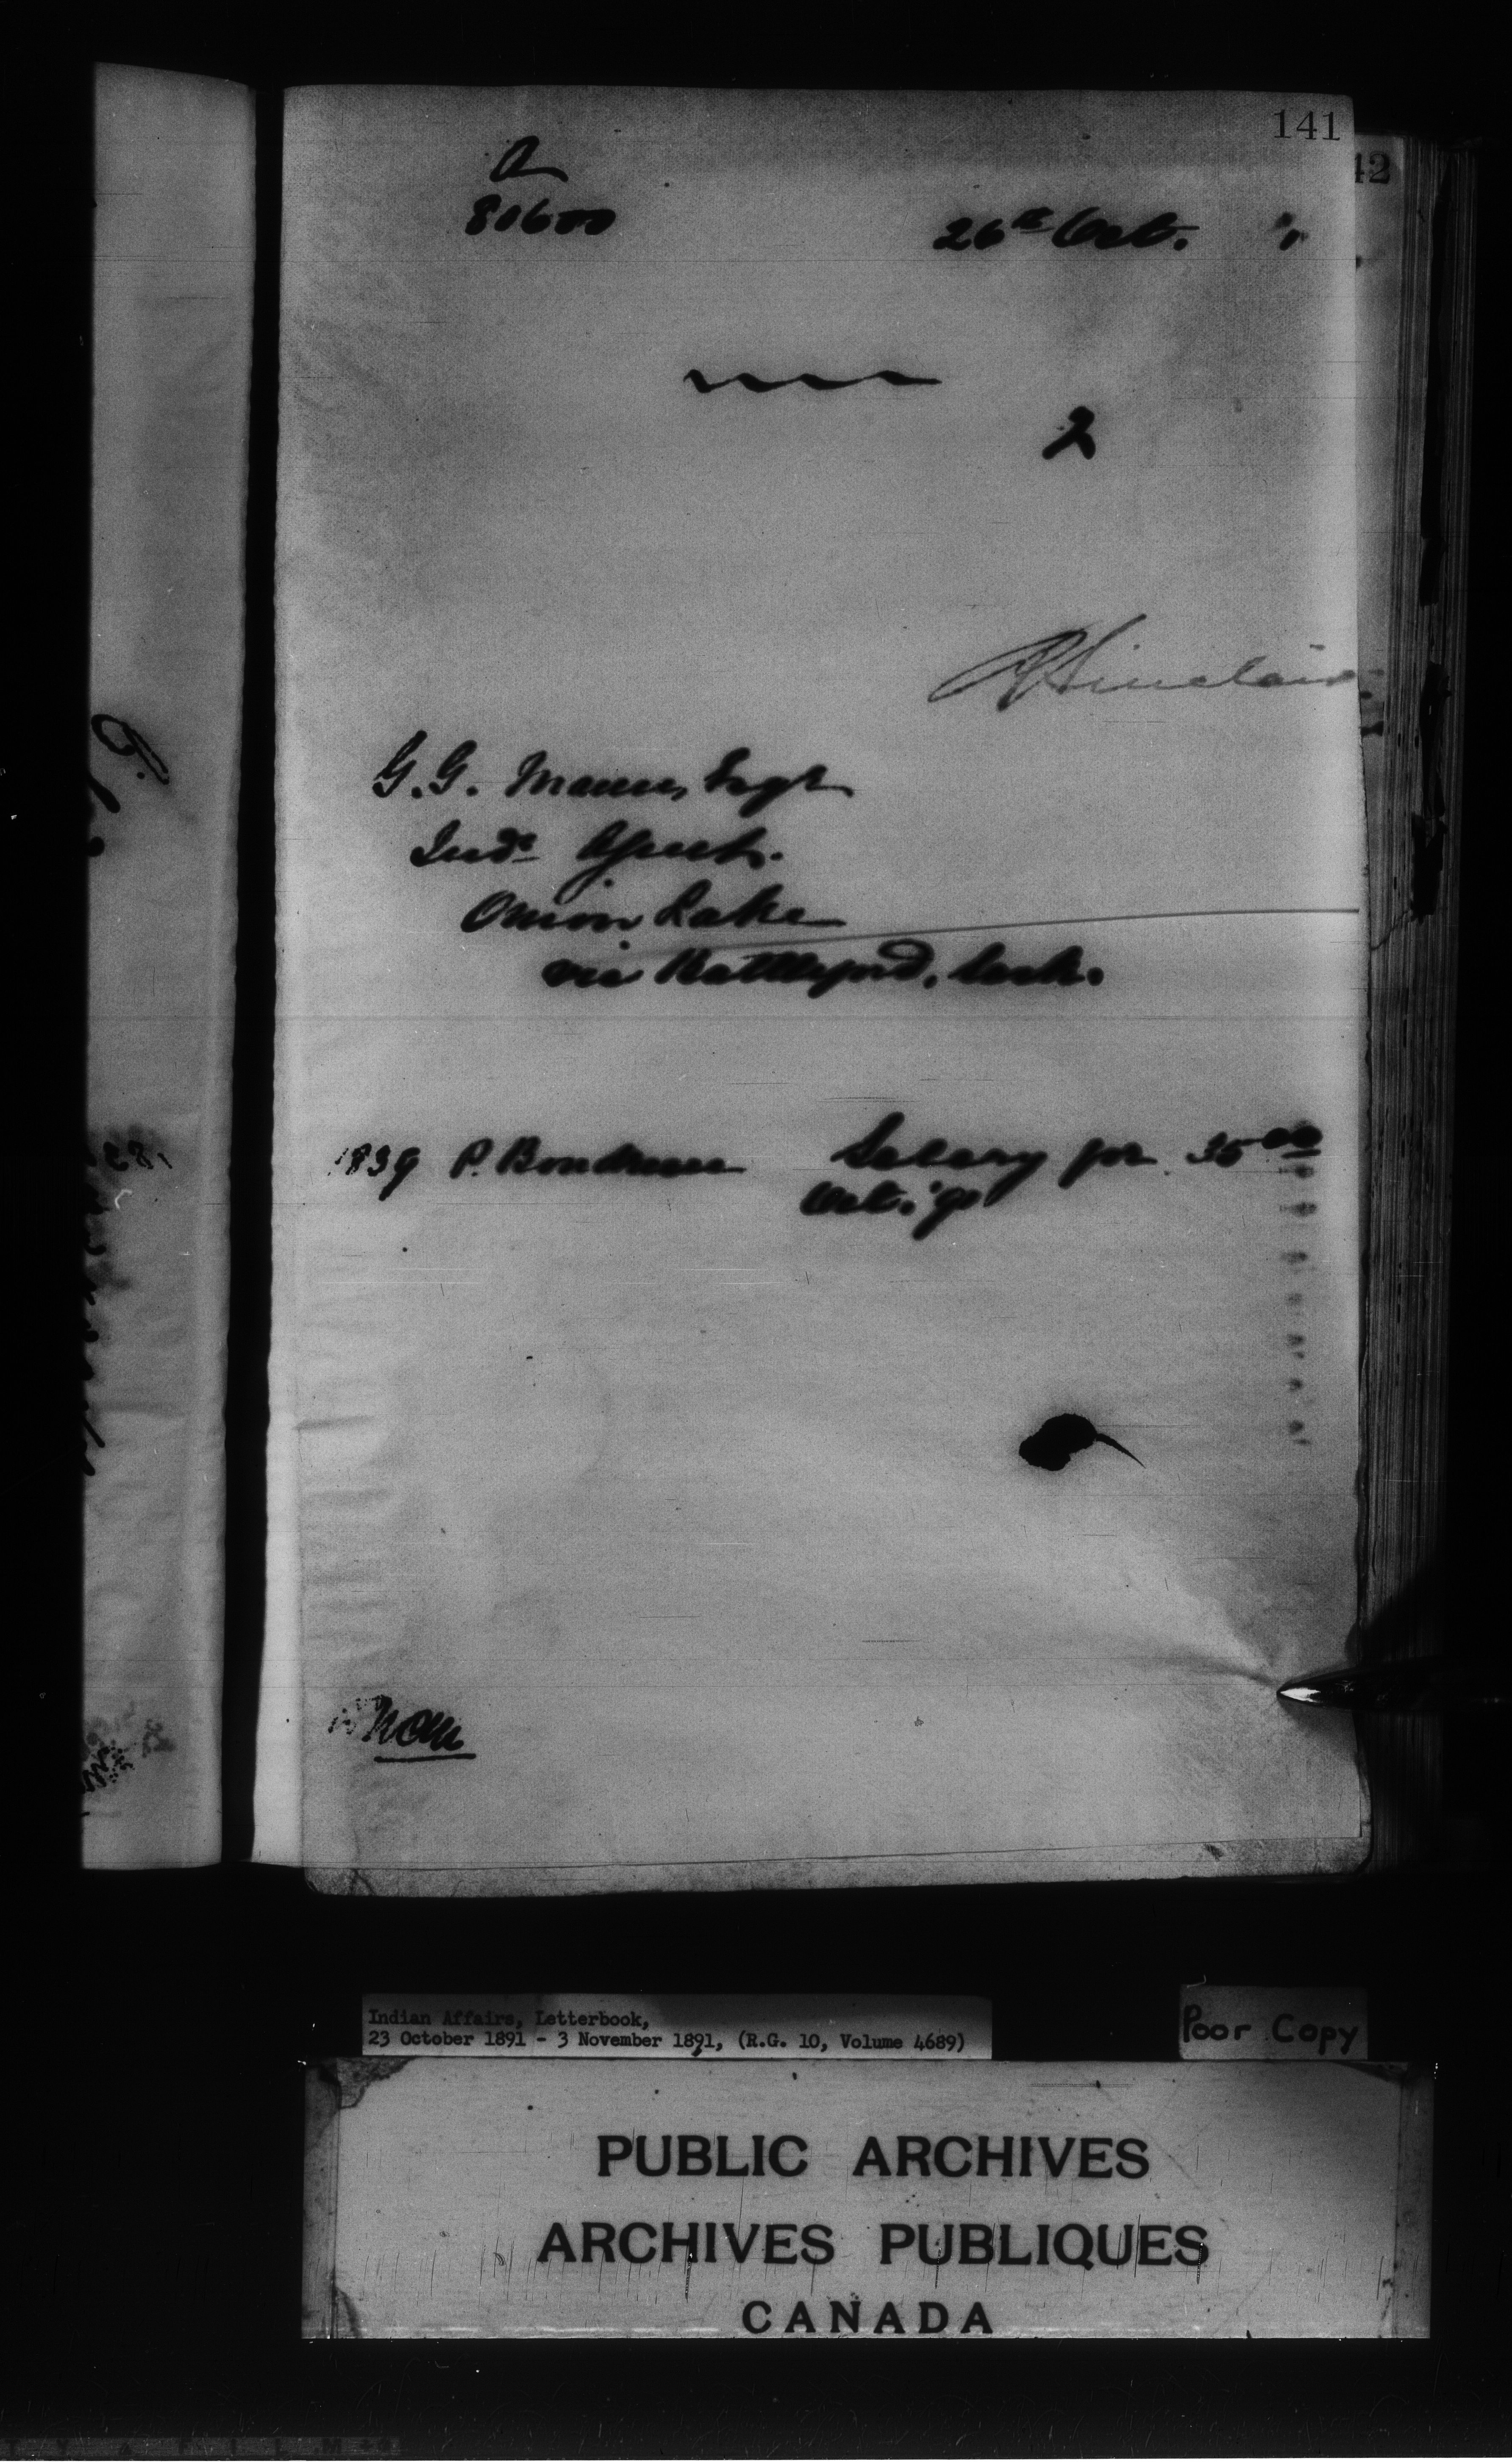 141
42
A
80600
26th Oct. "
2
A Sinclair
G. G. Mann, Esqr
Indn Agent.
Onion Lake
via Battleford, Sask.
1839 P. Bondreau Salary for 35 00
Oct. '91
Indian Affairs, Letterbook,
23 October 1891 - 3 November 1891, (R.G. 10, Volume 4689)
Poor Copy
PUBLIC ARCHIVES
ARCHIVES PUBLIQUES
CANADA